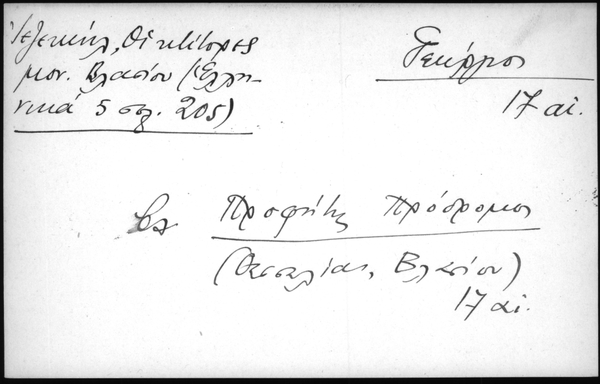 Ἰεζεκιήλ, Οἱ κτίτορες
μον. Βλασίου (Ἑλλη-
νικά 5 σελ. 205)
Γεώργιος
17 αἰ.
βλ Προφήτης Πρόδρομος
(Θεσσαλίας, Βλασίου)
17 αἰ.